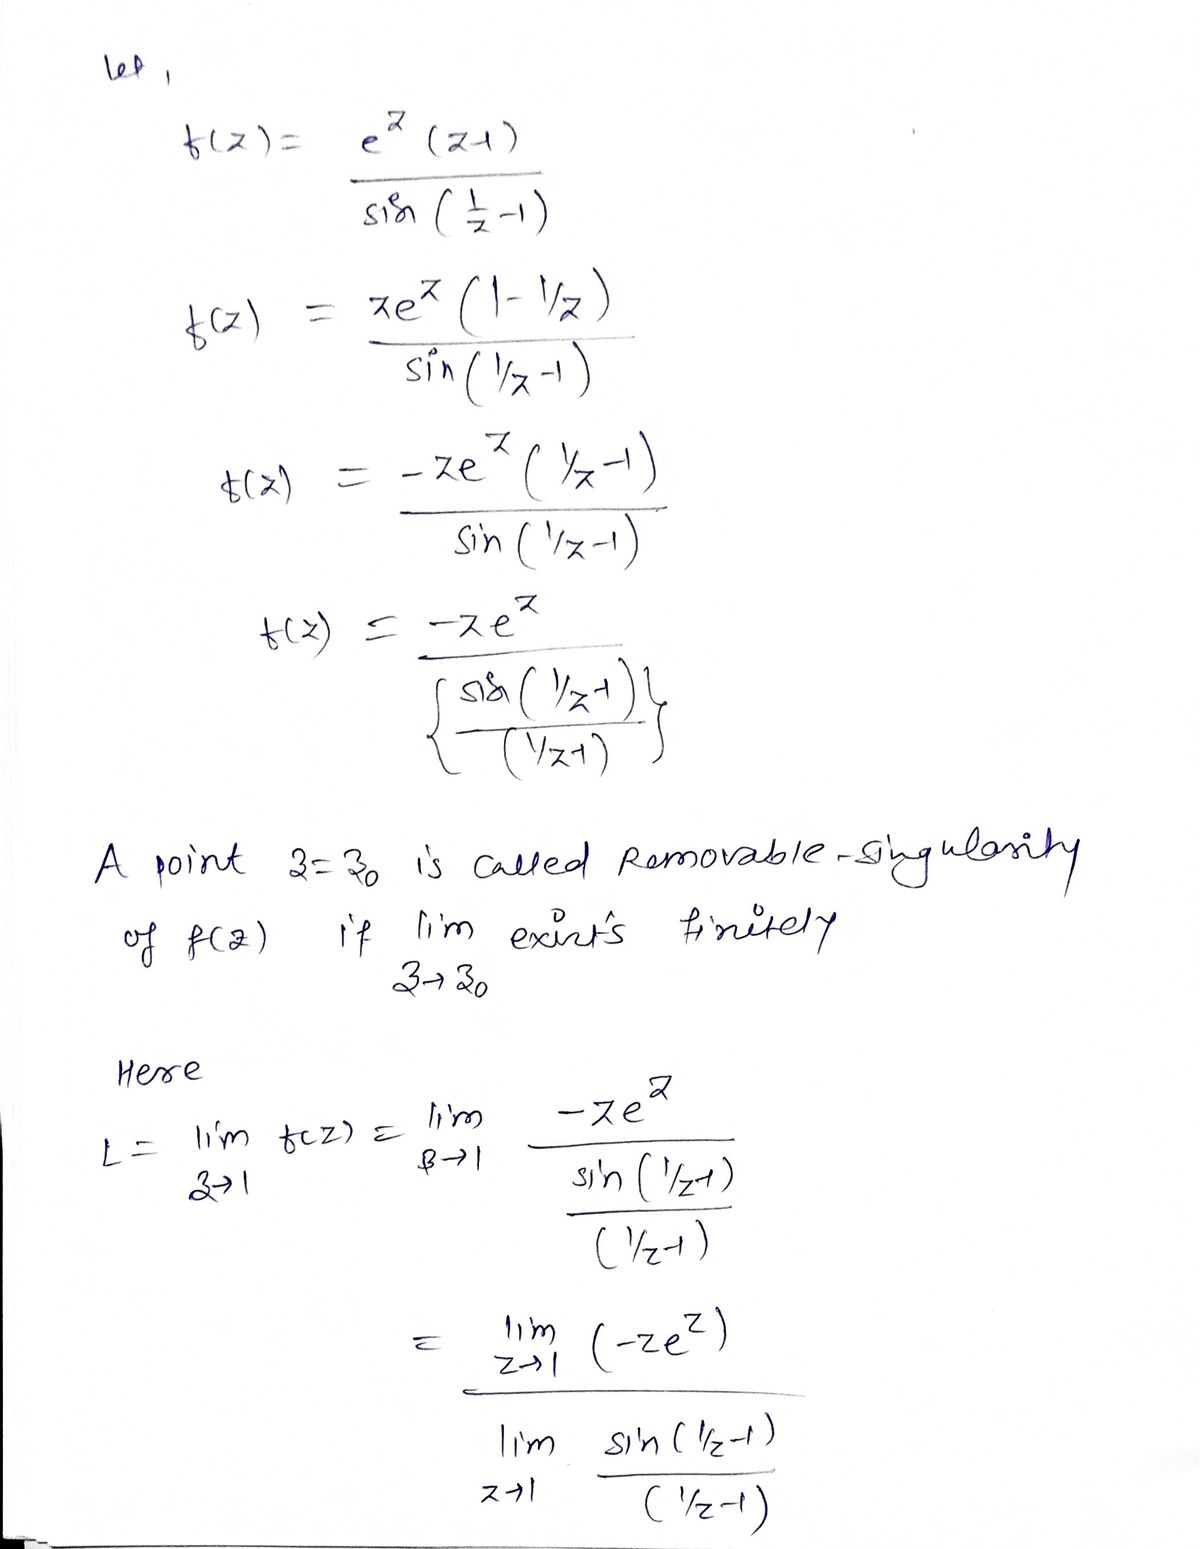 let,
f(z) = e^z (z-1) / sin (1/z - 1)
f(z) = ze^z (1 - 1/z) / sin (1/z - 1)
f(z) = -ze^z (1/z - 1) / sin (1/z - 1)
f(z) = -ze^z / { sin (1/z - 1) / (1/z - 1) }
A point z = z₀ is called Removable - singularity
of f(z) if lim exists finitely
z → z₀
Here
L = lim z→1 f(z) = lim z→1 -ze^z / ( sin (1/z - 1) / (1/z - 1) )
= lim z→1 (-ze^z) / lim z→1 sin (1/z - 1) / (1/z - 1)